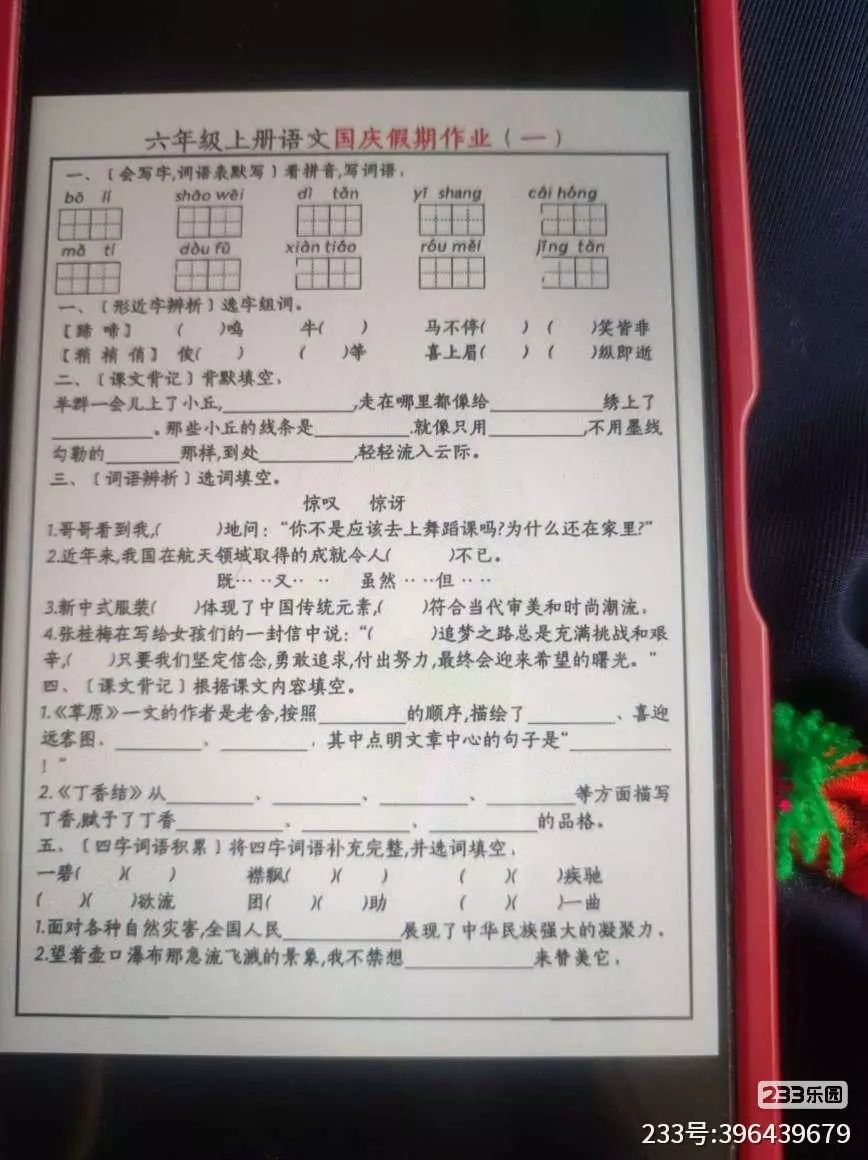 六年级上册语文国庆假期作业（一）
一、〔会写字,词语表默写〕看拼音,写词语。
bō lí shāo wēi dì tǎn yī shang cǎi hóng
mǎ tí dòu fǔ xiàn tiáo róu měi jīng tàn
一、〔形近字辨析〕选字组词。
【蹄 啼】 ( )鸣 牛( ) 马不停( ) ( )笑皆非
【稍 梢 俏】 俊( ) ( )等 喜上眉( ) ( )纵即逝
二、〔课文背记〕背默填空。
羊群一会儿上了小丘,____________,走在哪里都像给____________绣上了
____________。那些小丘的线条是__________,就像只用__________,不用墨线
勾勒的________那样,到处__________,轻轻流入云际。
三、〔词语辨析〕选词填空。
惊叹 惊讶
1.哥哥看到我,( )地问：“你不是应该去上舞蹈课吗?为什么还在家里?”
2.近年来,我国在航天领域取得的成就令人( )不已。
既……又…… 虽然……但……
3.新中式服装( )体现了中国传统元素,( )符合当代审美和时尚潮流。
4.张桂梅在写给女孩们的一封信中说：“( )追梦之路总是充满挑战和艰
辛,( )只要我们坚定信念,勇敢追求,付出努力,最终会迎来希望的曙光。”
四、〔课文背记〕根据课文内容填空。
1.《草原》一文的作者是老舍,按照_________的顺序,描绘了_________、喜迎
远客图、_________、_________，其中点明文章中心的句子是“__________
！”
2.《丁香结》从_________、_________、_________、_________等方面描写
丁香,赋予了丁香___________、___________、___________的品格。
五、〔四字词语积累〕将四字词语补充完整,并选词填空。
一碧( )( ) 襟飘( )( ) ( )( )疾驰
( )( )欲流 团( )( )助 ( )( )一曲
1.面对各种自然灾害,全国人民____________展现了中华民族强大的凝聚力。
2.望着壶口瀑布那急流飞溅的景象,我不禁想_____________来赞美它。
233乐园
233号:396439679